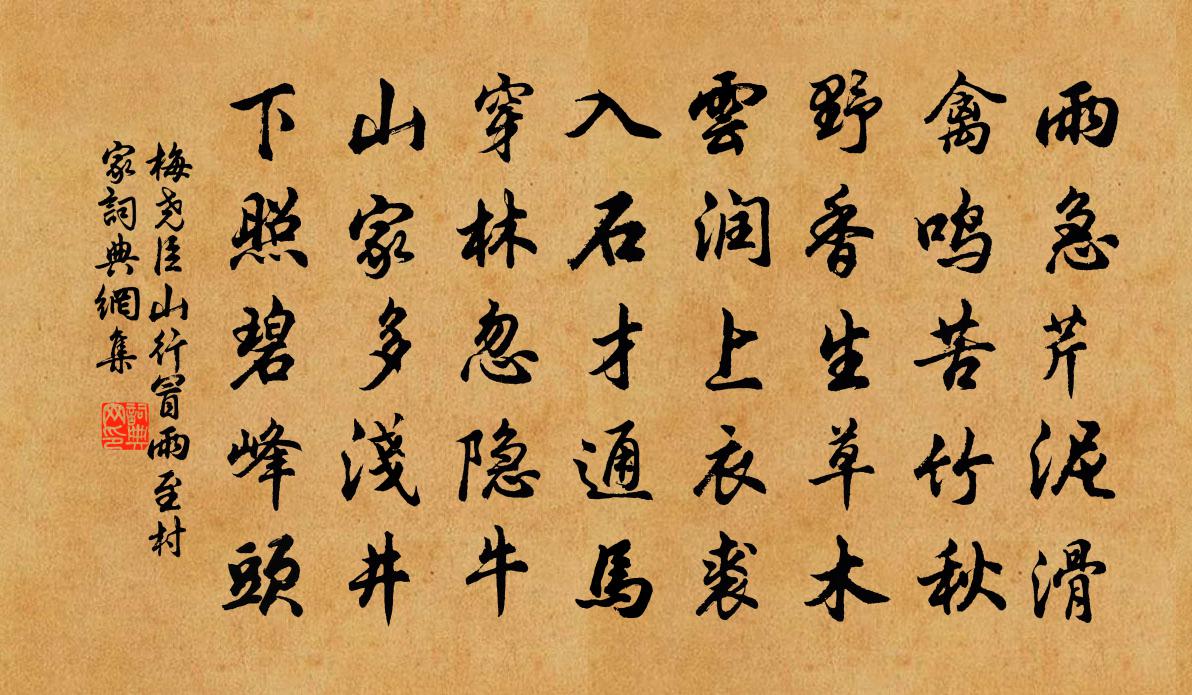 雨急芹泥滑
禽鸣苦竹秋
野香生草木
雲润上衣裘
入石才通馬
穿林忽隐牛
山家多淺井
下照碧峰頭
梅尧臣山行冒雨至村
家詞典網集
詞典
网印